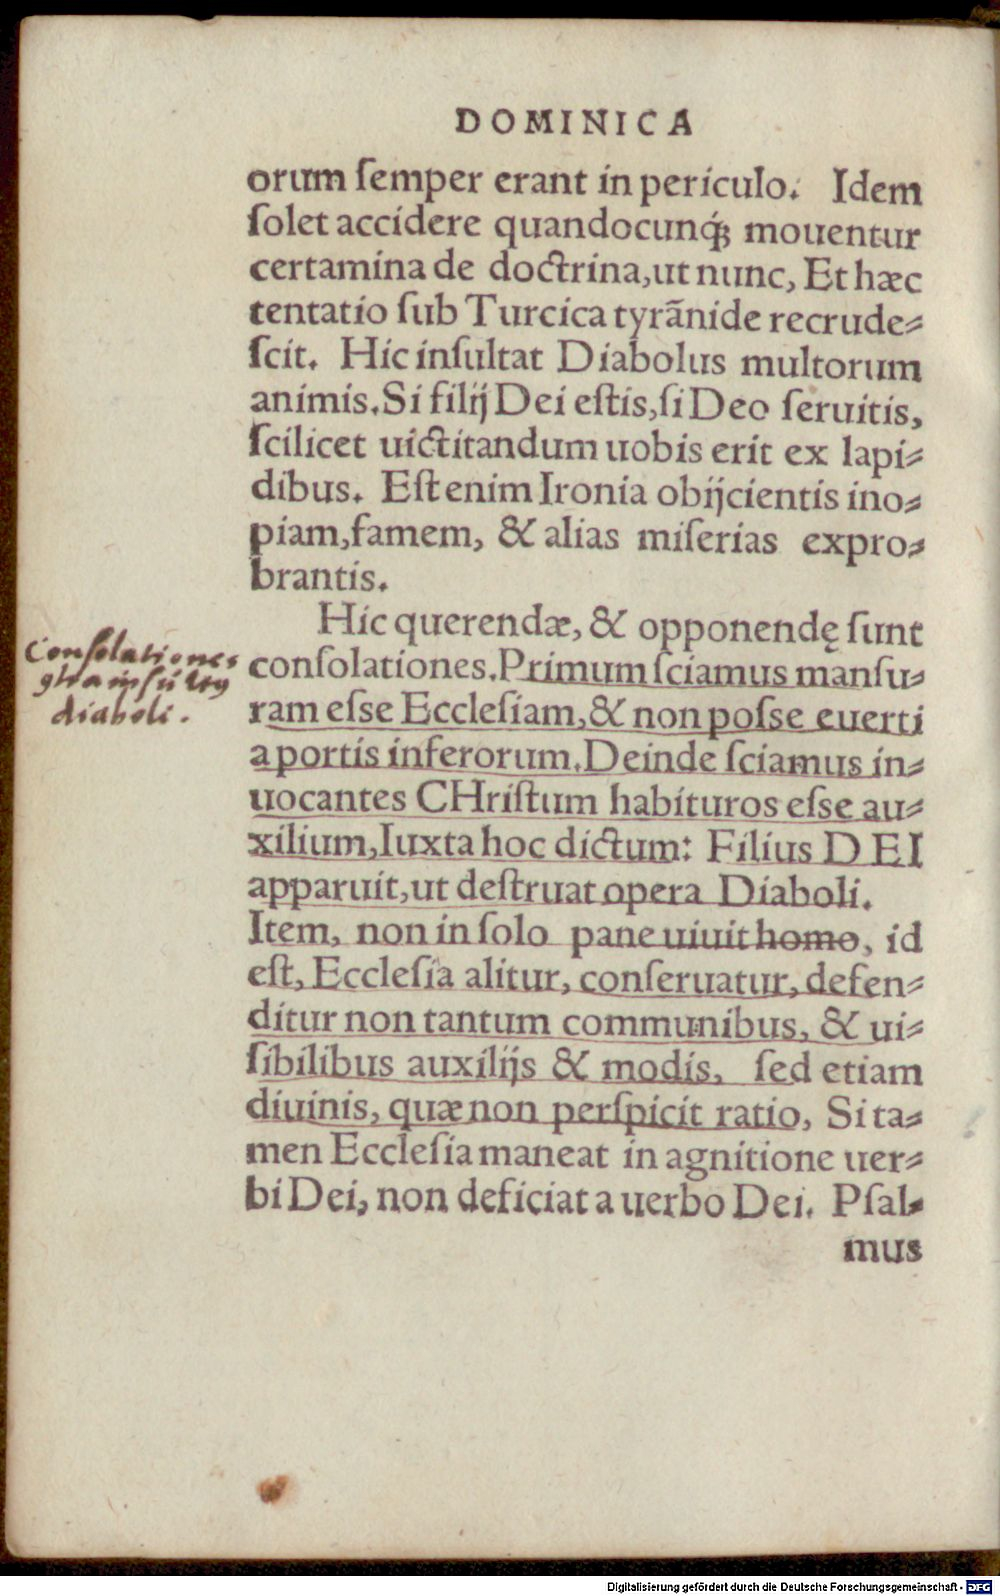 DOMINICA
orum ſemper erant in periculo. Idem
ſolet accidere quandocunq́ꝫ mouentur
certamina de doctrina, ut nunc, Et hæc
tentatio ſub Turcica tyrãnide recrude⸗
ſcit. Hic inſultat Diabolus multorum
animis. Si filij Dei eſtis, ſi Deo ſeruitis,
ſcilicet uictitandum uobis erit ex lapi⸗
dibus. Eſt enim Ironia obijcientis ino⸗
piam, famem, & alias miſerias expro⸗
brantis.
Hic querendæ, & opponendę ſunt
Conſolationes
inſultus
diaboli.
conſolationes. Primum ſciamus manſu⸗
ram eſse Eccleſiam, & non poſse euerti
a portis inferorum. Deinde ſciamus in⸗
uocantes CHriſtum habituros eſse au⸗
xilium, Iuxta hoc dictum: Filius DEI
apparuit, ut deſtruat opera Diaboli.
Item, non in ſolo pane uiuit homo, id
eſt, Eccleſia alitur, conſeruatur, defen⸗
ditur non tantum communibus, & ui⸗
ſibilibus auxilijs & modis, ſed etiam
diuinis, quæ non perſpicit ratio, Si ta⸗
men Eccleſia maneat in agnitione uer⸗
bi Dei, non deficiat a uerbo Dei. Pſal⸗
mus
Digitalisierung gefördert durch die Deutsche Forschungsgemeinschaft - DFG